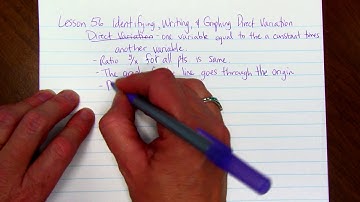 Lesson 56 Identifying, Writing, & Graphing Direct Variation
Direct Variation - one variable equal to the a constant times
another variable.
- Ratio y/x for all pts is same
- The line goes through the origin
-